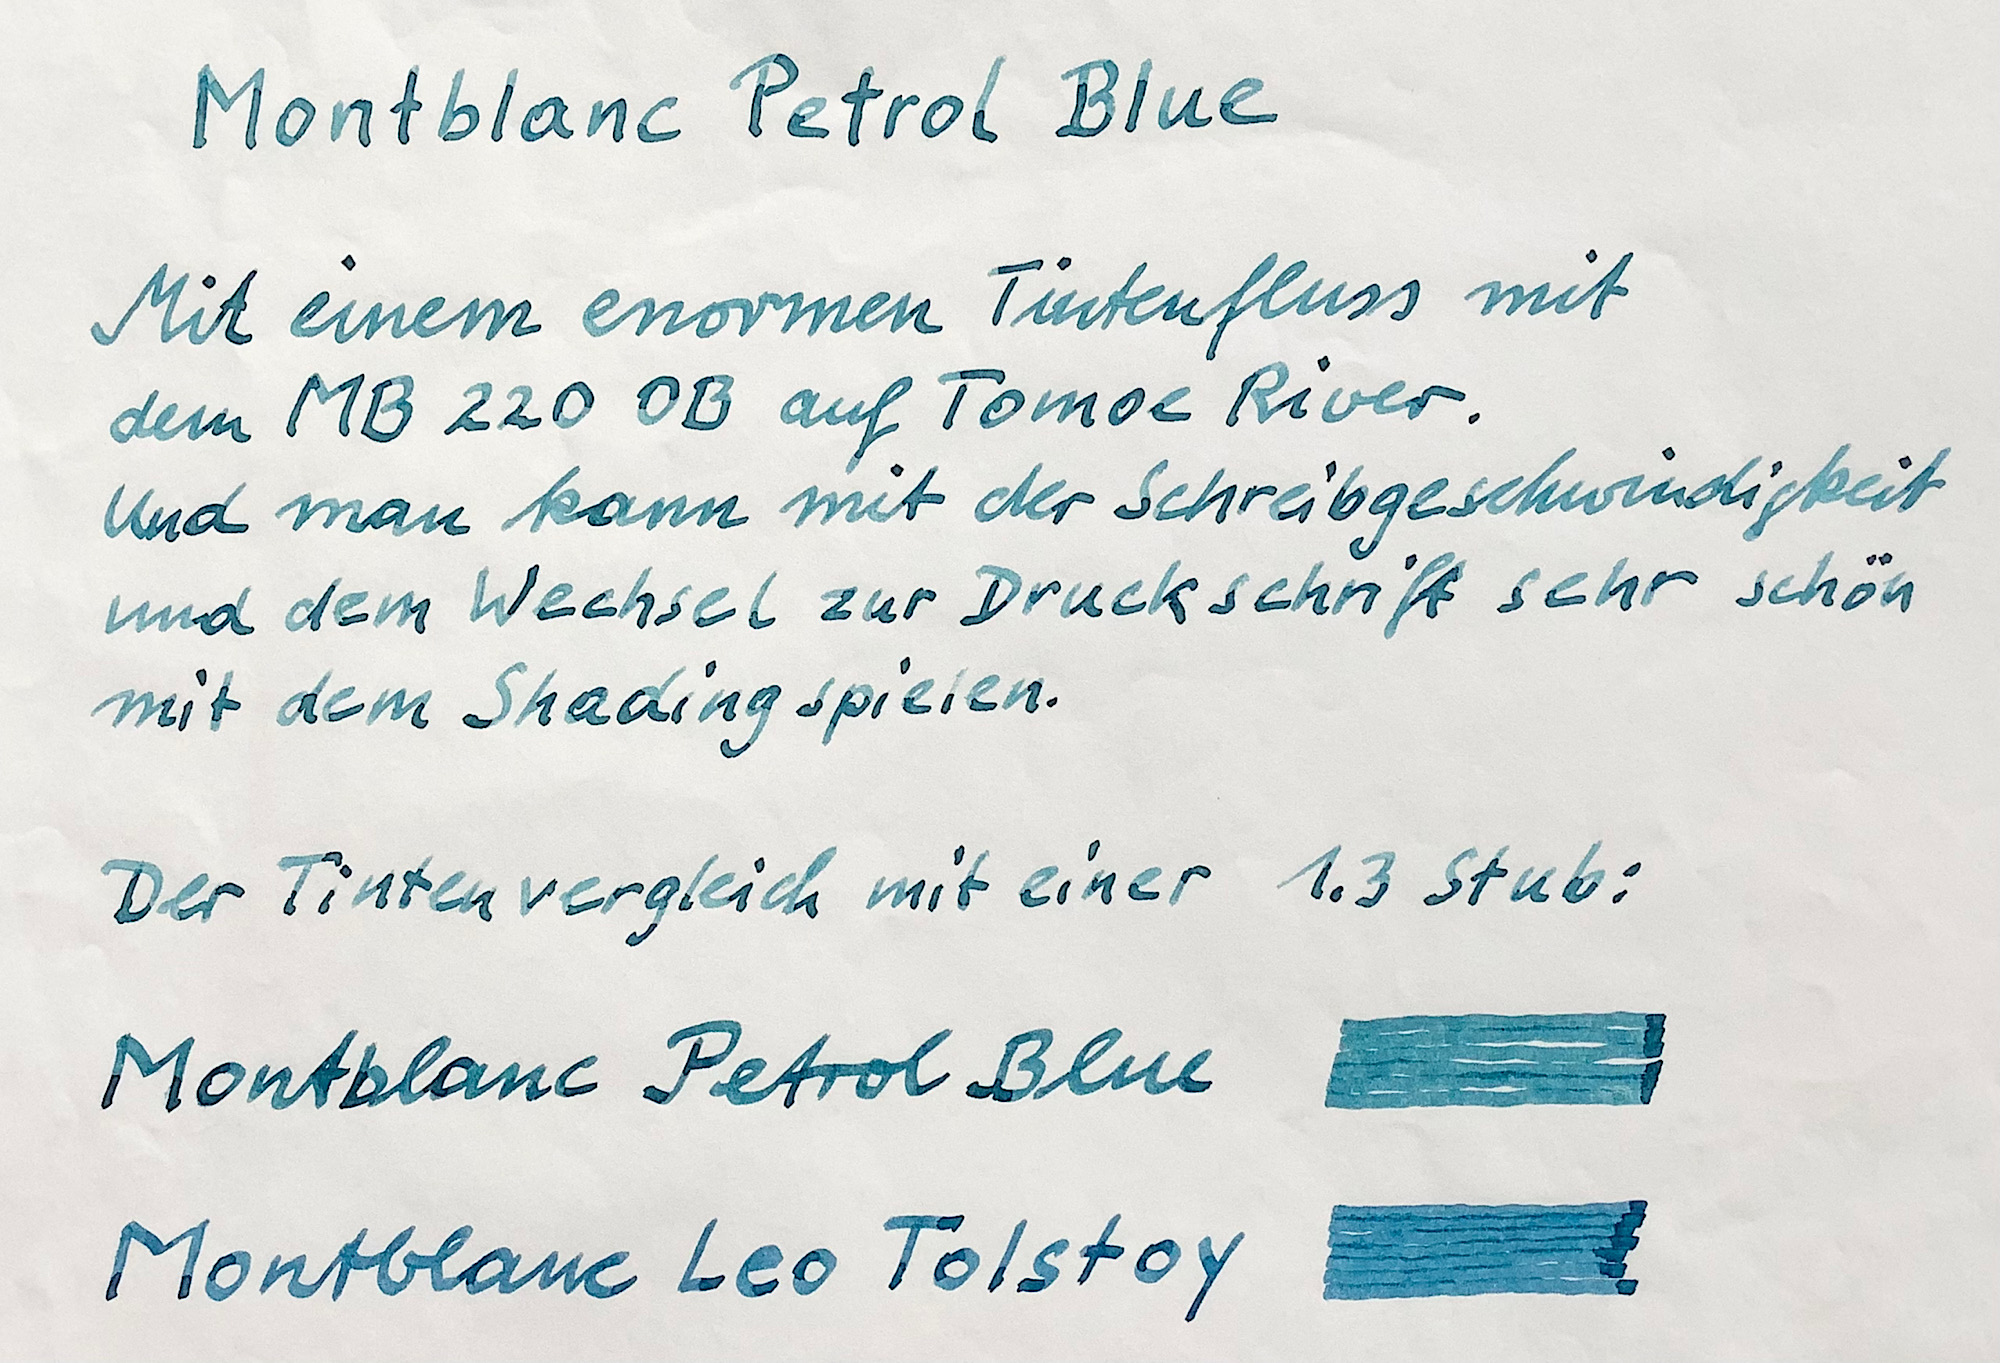 Montblanc Petrol Blue
Mit einem enormen Tintenfluss mit
dem MB 220 OB auf Tomoe River.
Und man kann mit der Schreibgeschwindigkeit
und dem Wechsel zur Druckschrift sehr schön
mit dem Shading spielen.
Der Tintenvergleich mit einer 1.3 Stub:
Montblanc Petrol Blue
Montblanc Leo Tolstoy